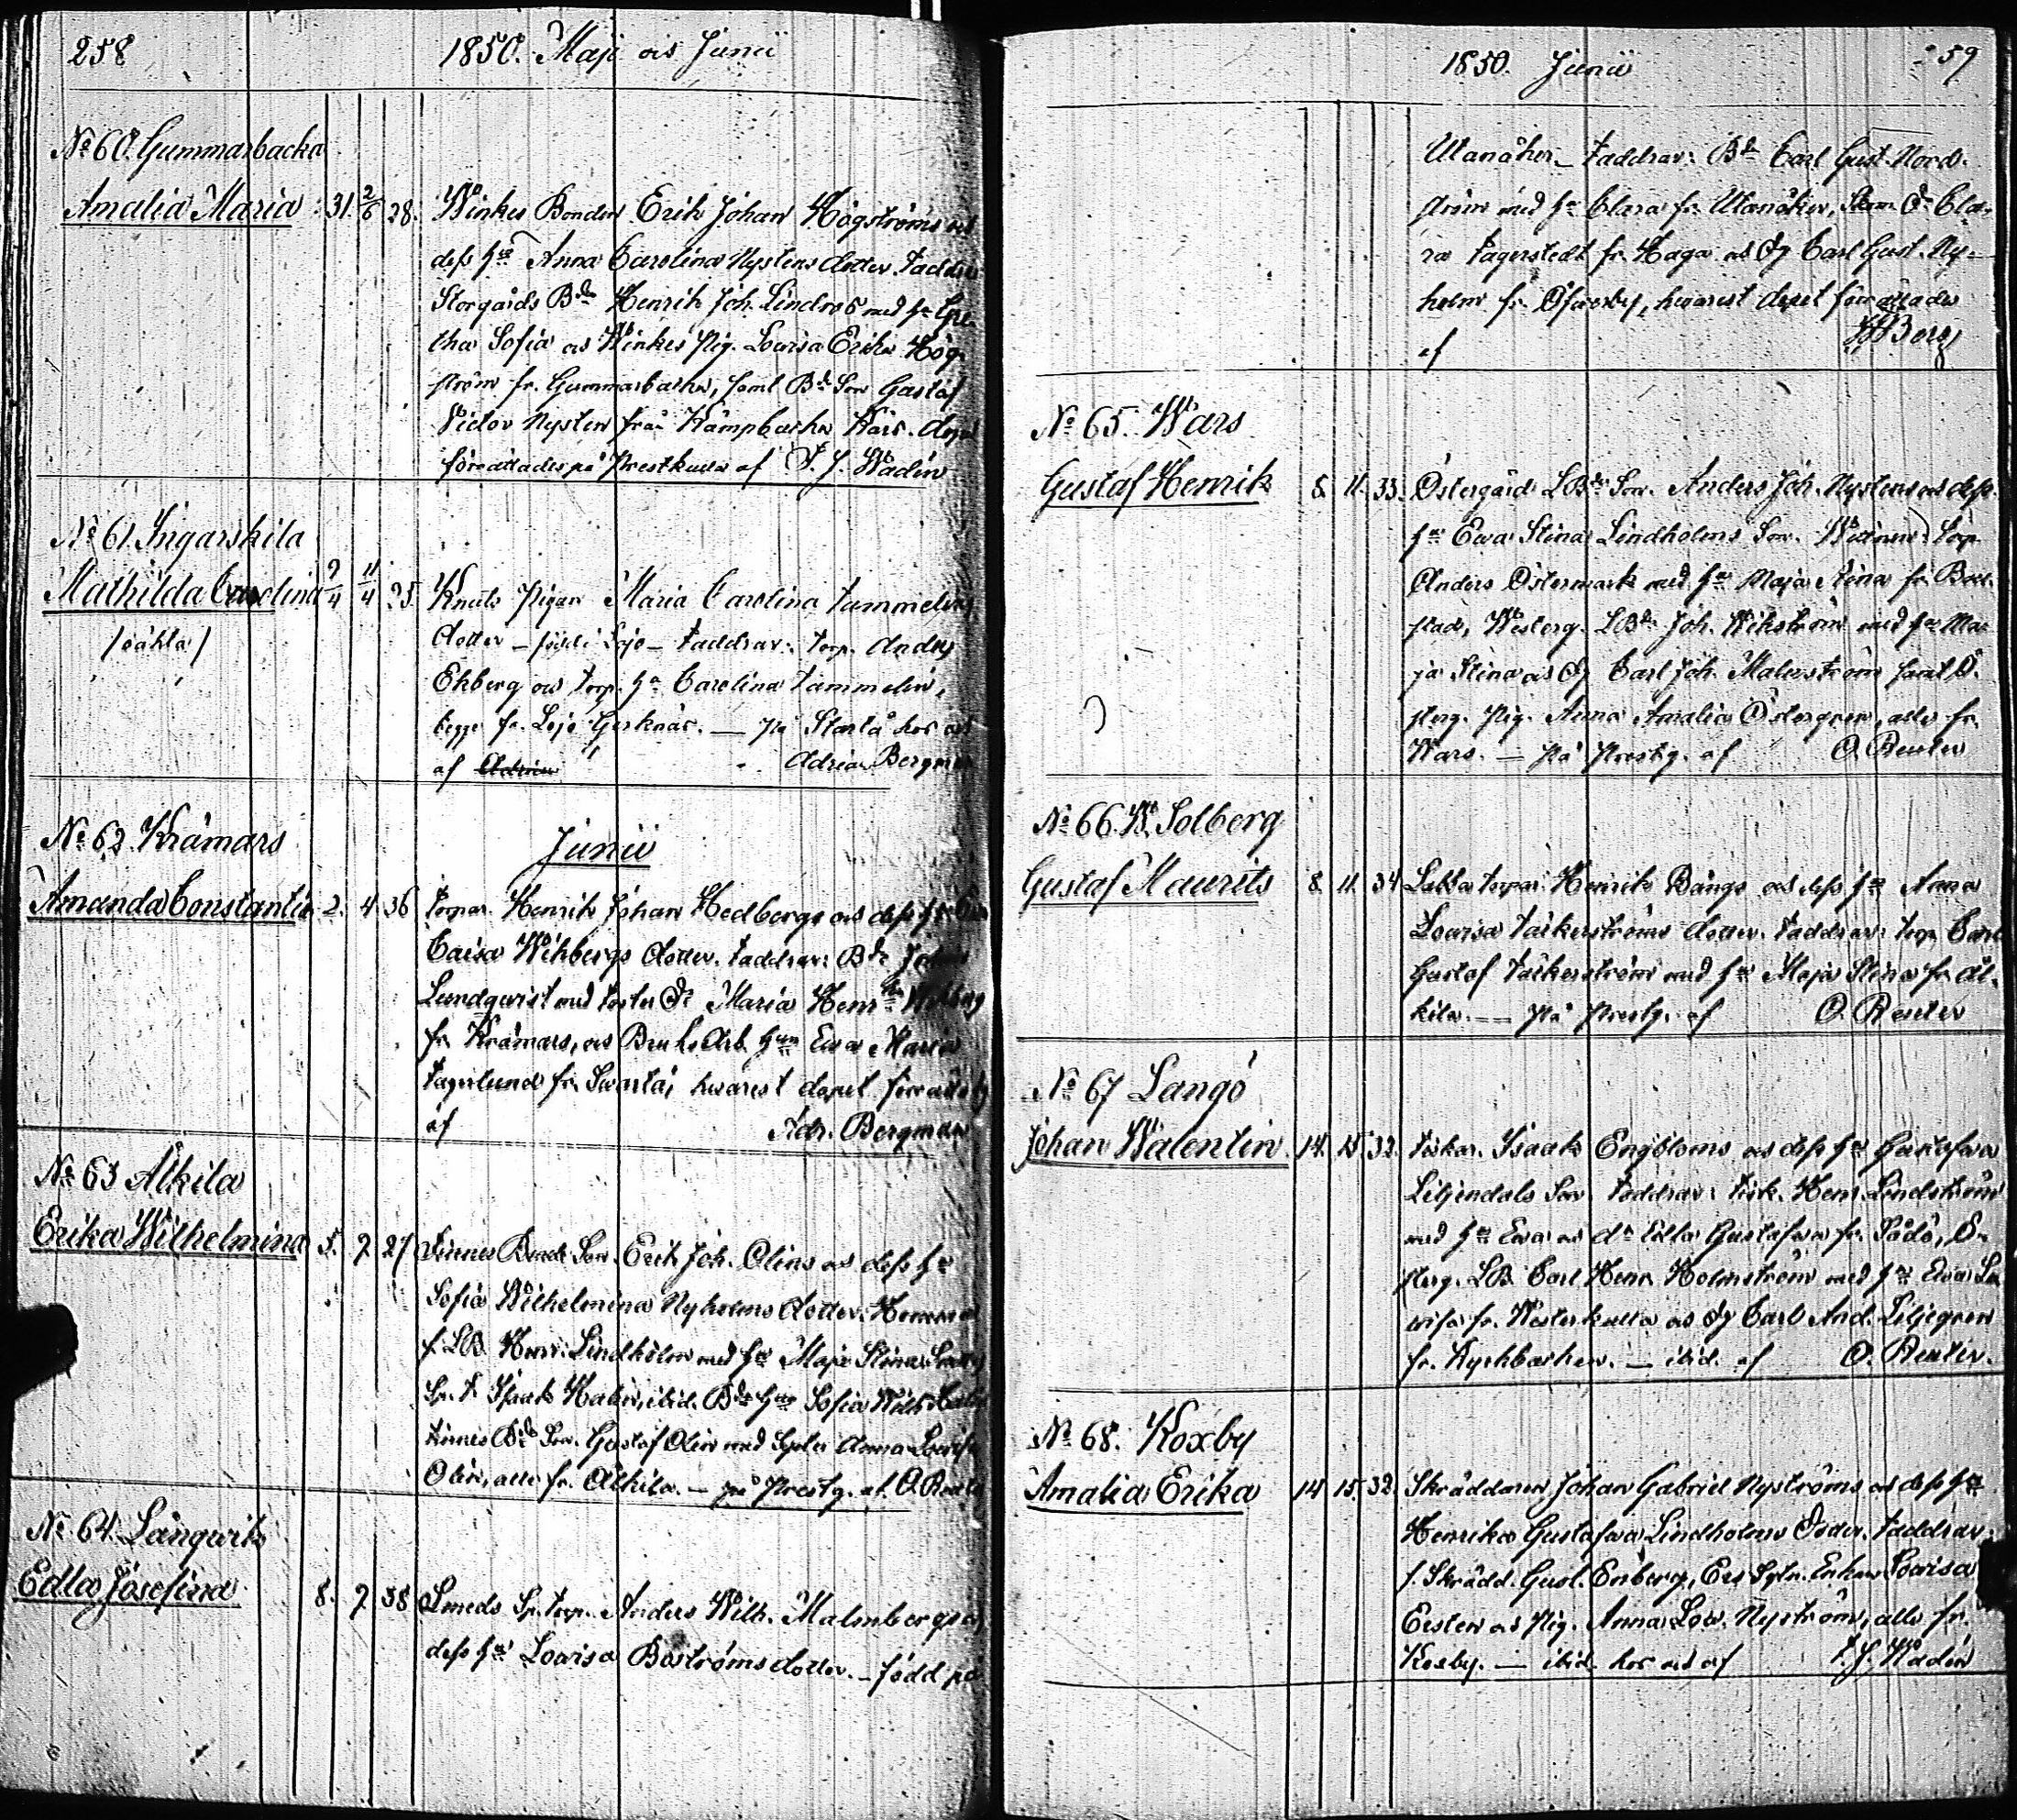 258
1850. Maji och Junii
No 60. Gummarbacka
Amalia Maria 31. 2/6 28. Winkes Bonden Erik Johan Högströms och
dess hu Anna Carolina Nystens dotter. Faddrar
Storgårds Bdn Henrik Joh. Lindros med hu Gre-
tha Sofia och Winkes Pig. Lovisa Erika Hög-
ström fr. Gummarbacka, samt Bd. Son Gustaf
Victor Nysten från Kämpbacka Karis. Dopet
förrättades på Prestkulla af F. J. Wadén
No 61. Ingarskila
Mathilda Carolina 9/4 11/4 25. Knuts Pigan Maria Carolina Tammelins
/oäkta/
dotter – född i Lojo – Faddrar: Torp. Anders
Ekberg och Torp. hu Carolina Tammelin,
begge fr. Lojo Gerknäs. — på Svartå hos och
af Adrian Bergman
No 62. Krämars
Junii
Amanda Constantia 2. 4 36 Torpar. Henrik Johan Hedbergs och dess hu
Caisa Wikbergs dotter. Faddrar: Bdn Johan
Lundqvist med Foster Dr Maria Henr.
fr. Krämars, och Bruks Arb. hun Eva Maria
Fagerlund fr. Svartå, hvarest dopet förrättats
af Adr. Bergman
No 63 Alkila
Erika Wilhelmina 5. 7 27 Finnes Bonde Son. Erik Joh. Olins och dess hu
Sofia Wilhelmina Nyholms dotter.
f. LB. Henr. Lindholm med hu Maja Stina
Sp. T. Isaak Malin, ibid. Bde hun Sofia Wilh.
Finnes Bds Son. Gustaf Olin med Syster Anna Lovisa
Olin, alle fr. Alkila. — på Prestg. af O. Reuter
No 64. Långwiks
Edla Josefina 8. 7 38 Smeds Sp. torp. Anders Wilh. Malmbergs och
dess hu Lovisa Boströms dotter. – född på
1850. Junii
259
Utanåker – Faddrar: Bdn Carl Gust. Nord-
ström med hu Clara fr. Utanåker, Dr Cla-
ra Fagerstedt fr. Haga och Dg Carl Gust. Ny-
holm fr. Öfverby, hvarest dopet förrättades
af Berg
No 65. Wars
Gustaf Henrik 8. 11. 33. Östergård LBds Son. Anders Joh. Nystens och dess
hu Eva Stina Lindholms Son. Wittnen: Torp.
Anders Östermark med hu Maja Stina fr. Bol-
stad, Westerg. LBdn Joh. Wikström med hu Ma-
ja Stina och Dg Carl Joh. Malmström samt Ö-
sterg. Pig. Anna Amalia Östergren, alle fr.
Wars. — På Prestg. af O. Reuter
No 66. W. Solberg
Gustaf Maurits 8. 11. 34 Torpar. Henrik Bångs och dess hu Anna
Lovisa Fäkerströms dotter. Faddrar: Torp. Carl
Gustaf Fäkerström med hu Maja Stina fr. Al-
kila. — På Prestg. af O. Reuter
No 67 Langö
Johan Walentin. 14. 15. 32. Fiskar. Isaak Engbloms och dess hu Gustafva
Liljendals Son. Faddrar: Fisk. Henr. Lindström
med hu Eva och Dr Edla Gustafva fr. Sådö, Ö-
sterg. LB. Carl Henr. Holmström med hu Eva Lo-
visa fr. Westerkulla och Dg Carl And. Liljegren
fr. Kyrkbacken. — ibid. af O. Reuter.
No 68. Koxby
Amalia Erika 14 15. 32. Skräddaren Johan Gabriel Nyströms och dess hu
Henrika Gustafva Lindholms Doder. Faddrar:
f. Skrädd. Gust. Enberg, Enkan Lovisa
Ersten och Pig. Anna Lov. Nyström, alle fr.
Koxby. — ibid. hos och af F. J. Wadén